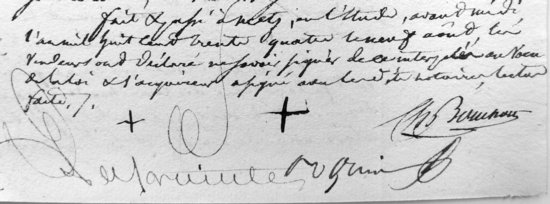 fait & passé à metz, en l'Etude, avant midi
l'an mil huit cent trente quatre le neuf août, les
vendeurs ont déclaré ne savoir signer de ce interpelés au vœu
de la loi & l'acquéreur a signé avec les dits notaires, lecture
faite, /.
+ +